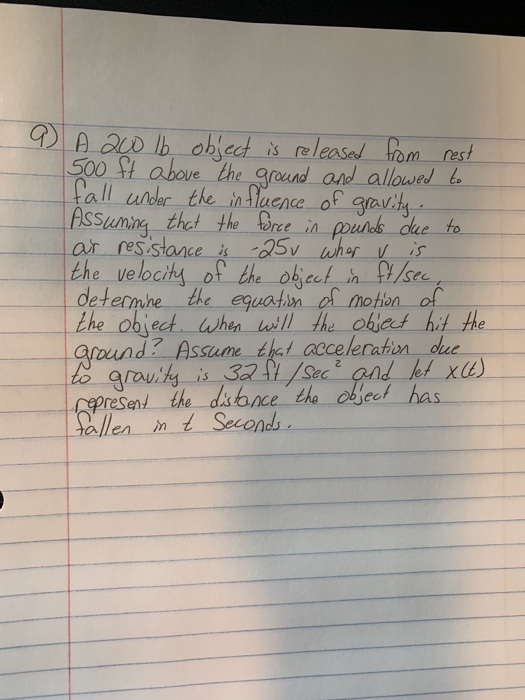 9) A 200 lb object is released from rest
500 ft above the ground and allowed to
fall under the influence of gravity.
Assuming that the force in pounds due to
air resistance is -25v wher v is
the velocity of the object in ft/sec,
determine the equation of motion of
the object. When will the object hit the
ground? Assume that acceleration due
to gravity is 32 ft/sec² and let x(t)
represent the distance the object has
fallen in t seconds.